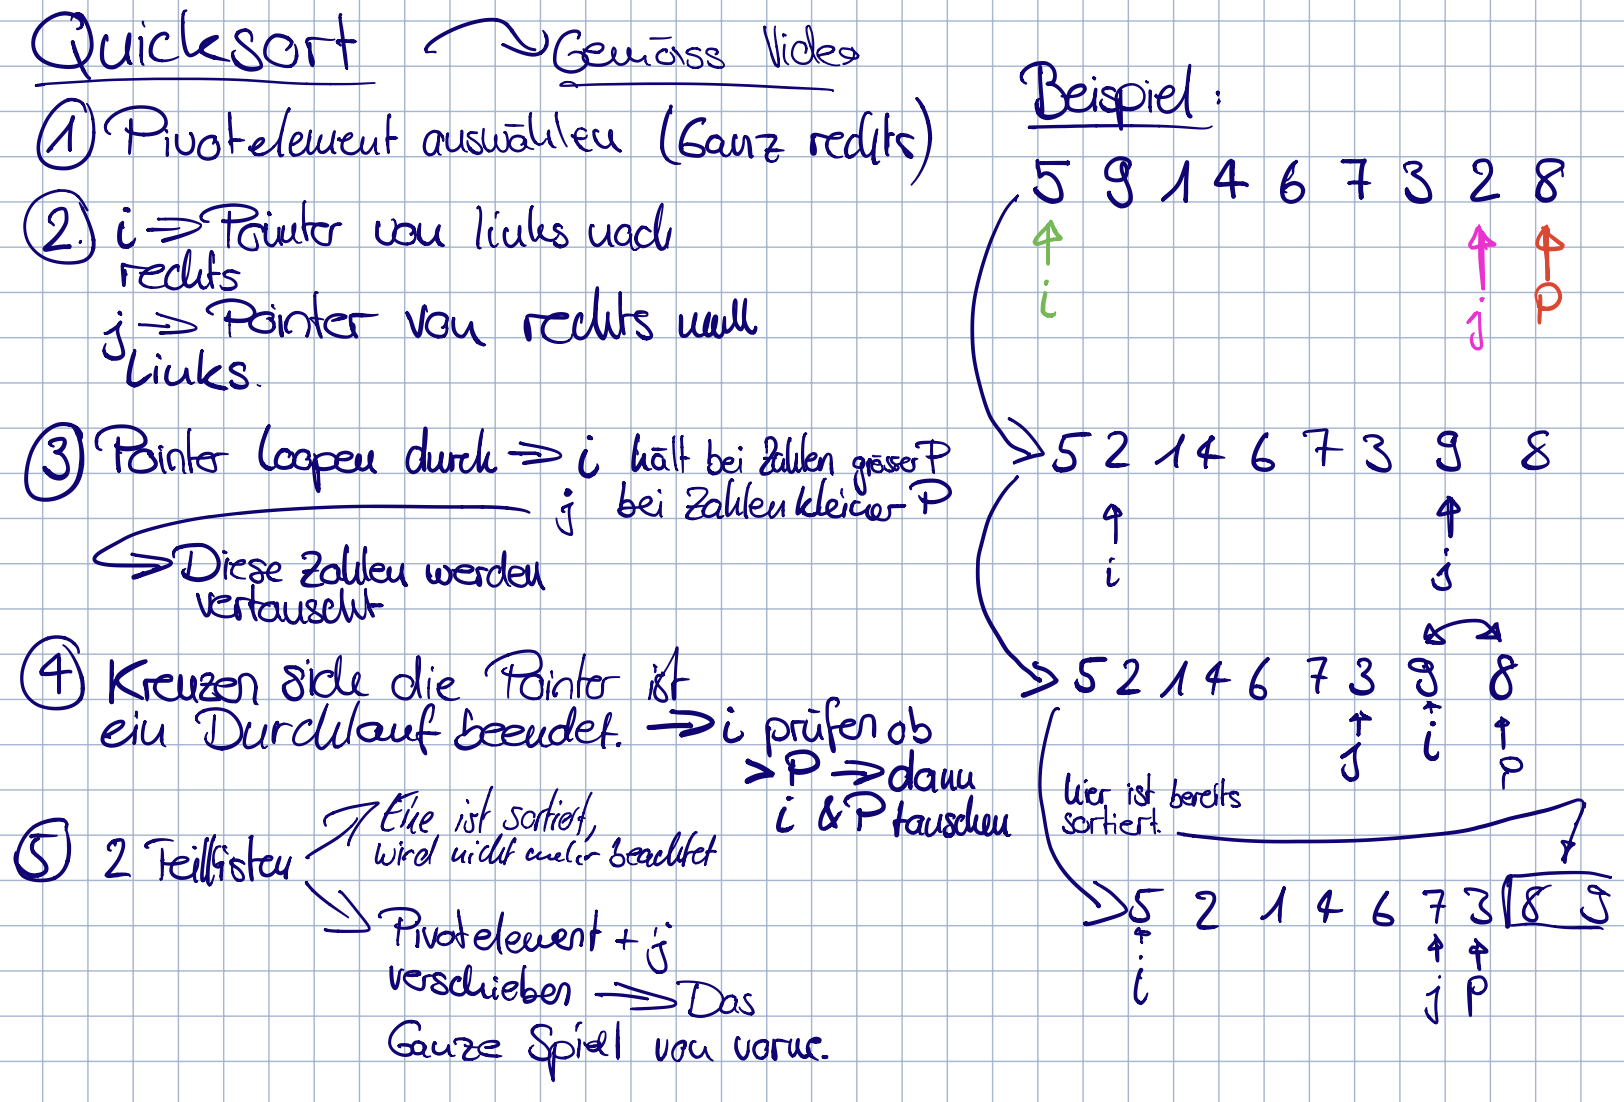 Quicksort Gemäss Video
① Pivotelement auswählen (Ganz rechts)
②. i ⇒ Pointer von links nach
rechts
j ⇒ Pointer von rechts
Links.
③ Pointer loopen durch ⇒ i hält bei Zahlen grösser P
j bei Zahlen kleiner P
→ Diese Zahlen werden
vertauscht
④ Kreuzen sich die Pointer ist
ein Durchlauf beendet. → i prüfen ob
> P ⇒ dann
i & P tauschen
⑤ 2 Teillisten
Eine ist sortiert,
wird nicht mehr beachtet
Pivotelement + j
verschieben ⇒ Das
Ganze Spiel von vorne.
Beispiel:
5 9 1 4 6 7 3 2 8
i j P
5 2 1 4 6 7 3 9 8
i j
5 2 1 4 6 7 3 9 8
j i P
hier ist bereits
sortiert.
5 2 1 4 6 7 3 8 9
i j P